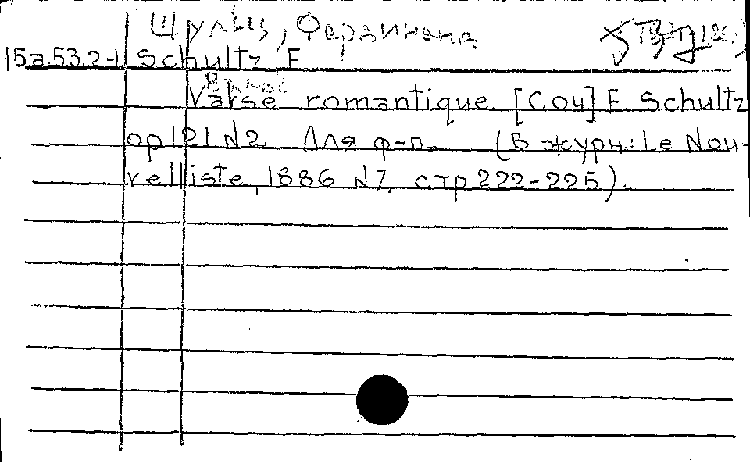 Шульц, Фердинанд
15а.53.2-1 Schultz F
Вальс
Valse romantique. [Соч] F Schultz
op 121 N2 Для ф-п. (В журн: Le Nou-
velliste, 1886 N7, стр 222-225).